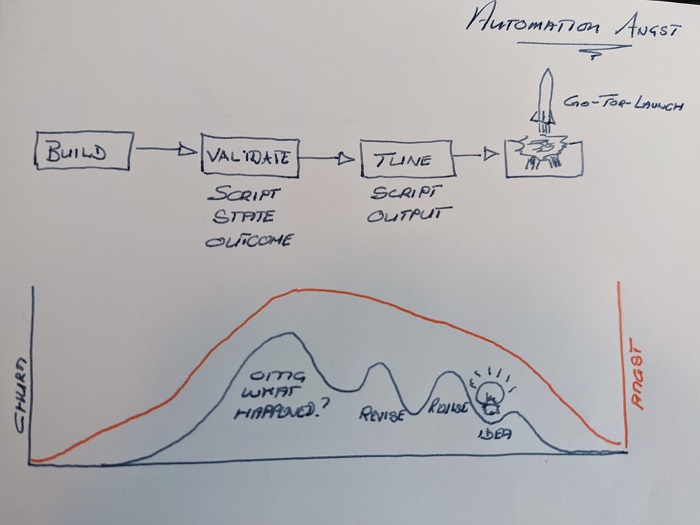 AUTOMATION ANGST
GO-FOR-LAUNCH
BUILD
VALIDATE
TUNE
SCRIPT
STATE
OUTCOME
SCRIPT
OUTPUT
CHURN
OMG
WHAT
HAPPENED?
REVISE
REVISE
IDEA
ANGST